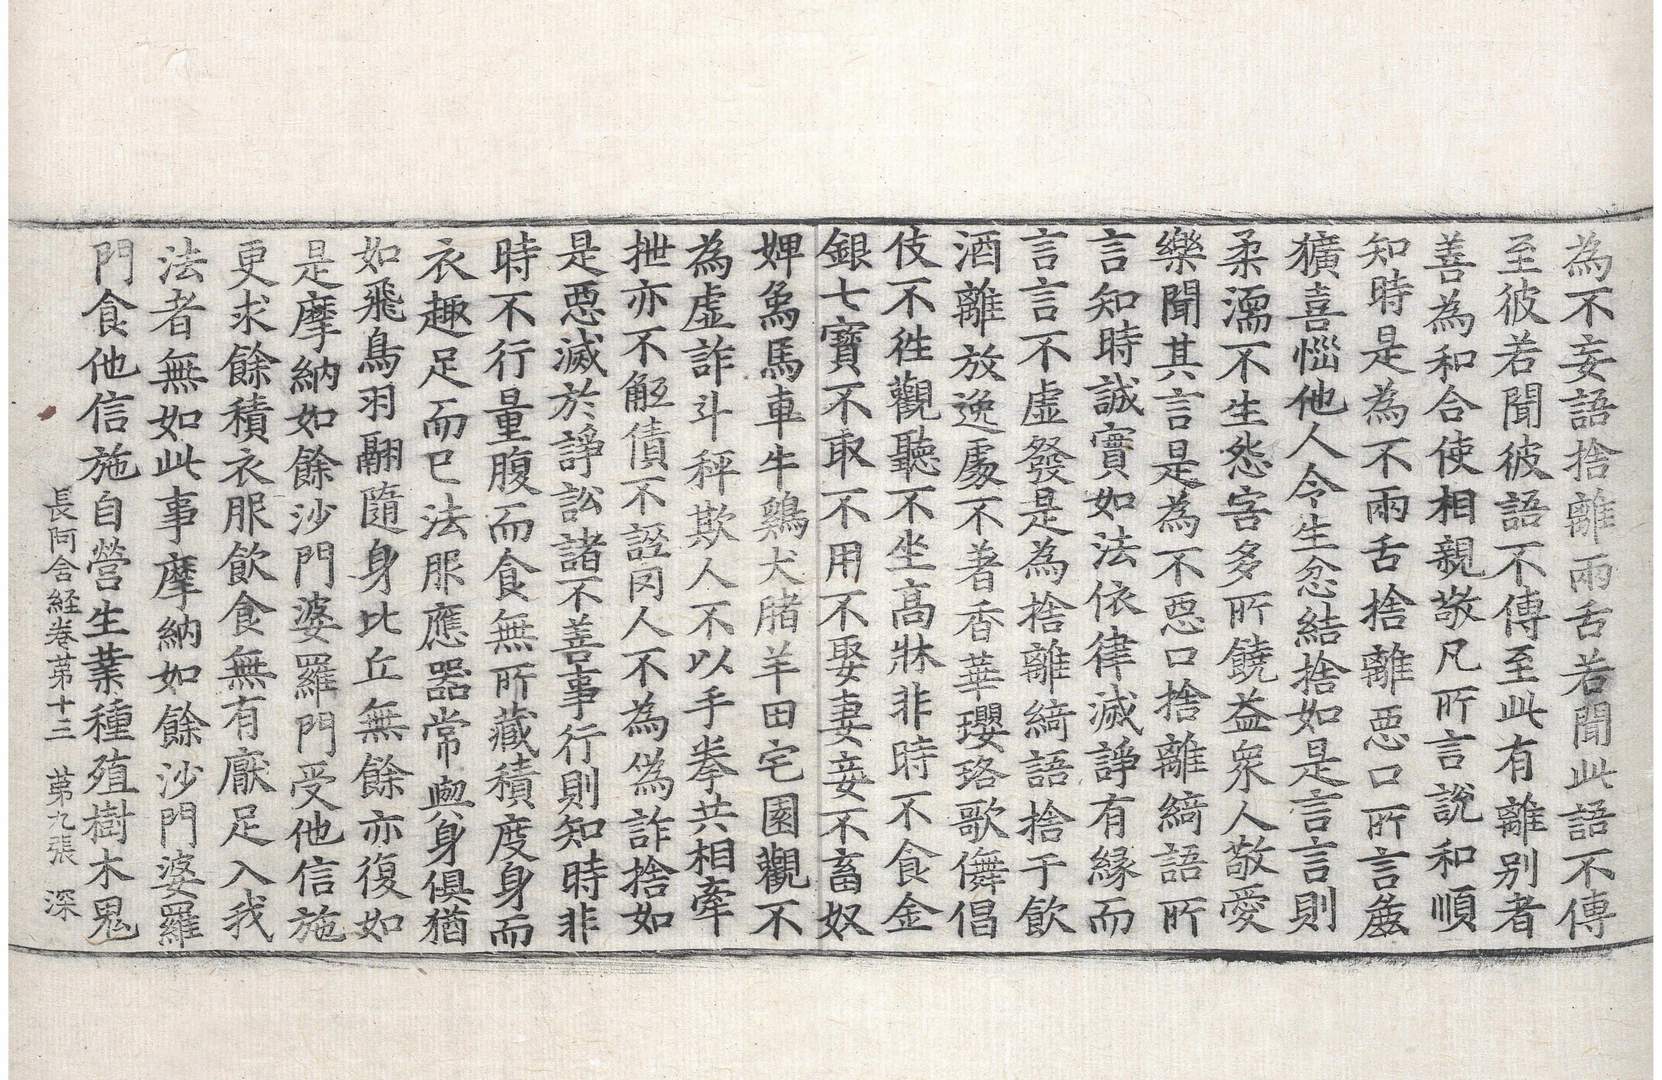 為不妄語捨離兩舌若聞此語不傳
至彼若聞彼語不傳至此有離別者
善為和合使相親敬凡所言說和順
知時是為不兩舌捨離惡口所言麁
獷喜惱他人令生忿結捨如是言言則
柔濡不生怨害多所饒益衆人敬愛
樂聞其言是為不惡口捨離綺語所
言知時誠實如法依律滅諍有緣而
言言不虛發是為捨離綺語捨于飲
酒離放逸處不著香華瓔珞歌儛倡
伎不徃觀聽不坐高牀非時不食金
銀七寶不取不用不娶妻妾不畜奴
婢象馬車牛鷄犬猪羊田宅園觀不
為虛詐斗秤欺人不以手拳共相牽
抴亦不觝債不誣罔人不為偽詐捨如
是惡滅於諍訟諸不善事行則知時非
時不行量腹而食無所藏積度身而
衣趣足而已法服應器常與身俱猶
如飛鳥羽翮隨身比丘無餘亦復如
是摩納如餘沙門婆羅門受他信施
更求餘積衣服飲食無有厭足入我
法者無如此事摩納如餘沙門婆羅
門食他信施自營生業種殖樹木鬼
長阿含経卷苐十三　苐九張　深